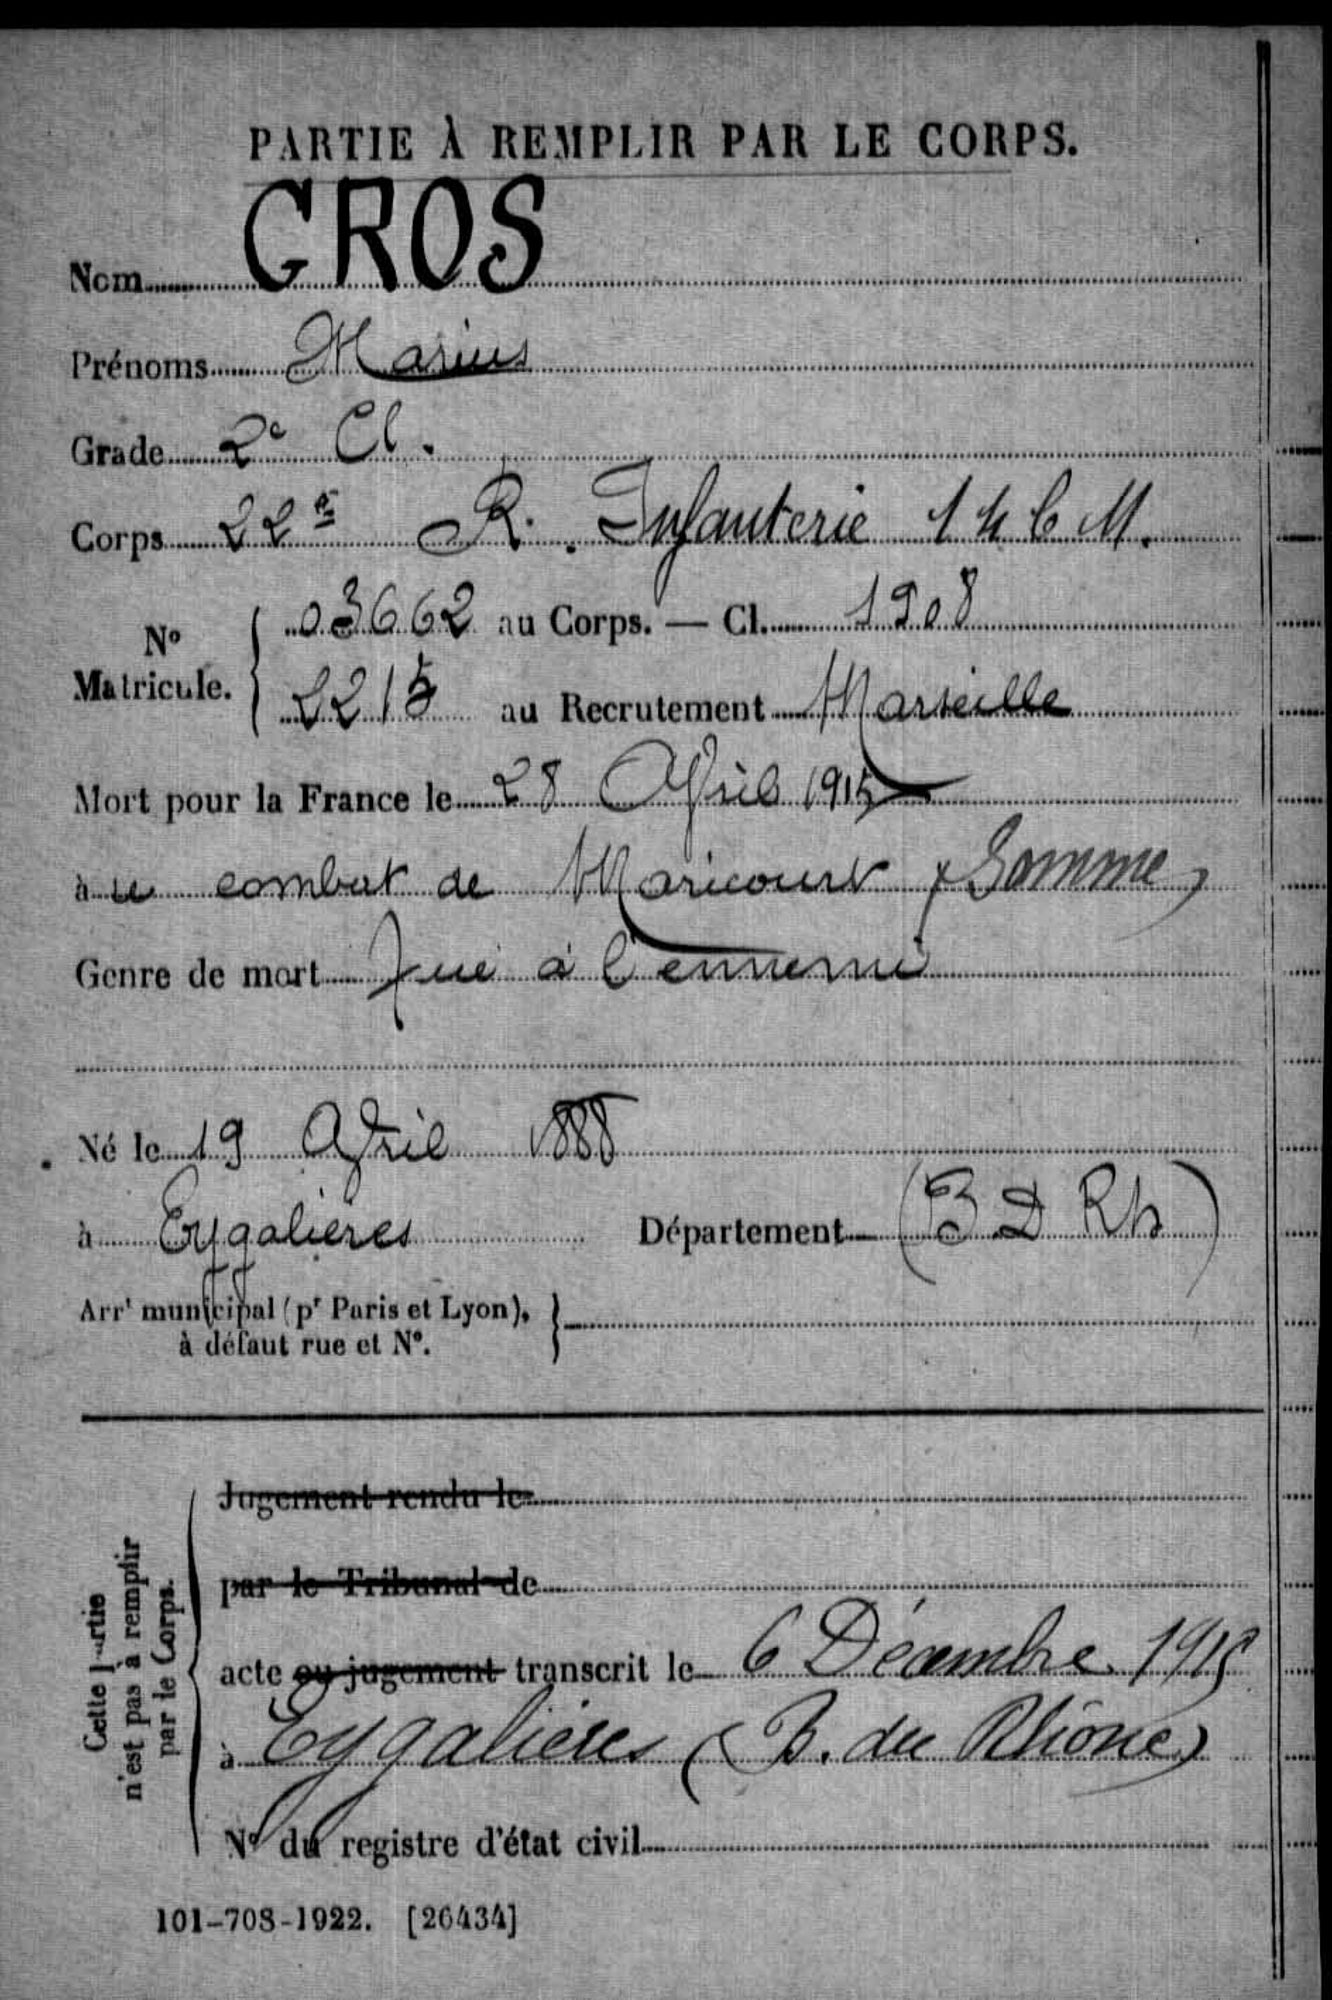 PARTIE À REMPLIR PAR LE CORPS.
Nom GROS
Prénoms Marius
Grade 2e Cl.
Corps 22e R. Infanterie
N° Matricule. 03662 au Corps. — Cl. 1908
2215 au Recrutement Marseille
Mort pour la France le 28 Avril 1915
à le combat de Maricourt (Somme)
Genre de mort Tué à l'ennemi
Né le 19 Avril 1888
à Eygalières Département (B D Rh)
Arrt municipal (pr Paris et Lyon),
à défaut rue et N°.
Jugement rendu le
par le Tribunal de
acte ou jugement transcrit le 6 Décembre 1915
à Eygalières (B. du Rhône)
N° du registre d'état civil
Cette partie
n'est pas à remplir
par le Corps.
101-708-1922. [26434]